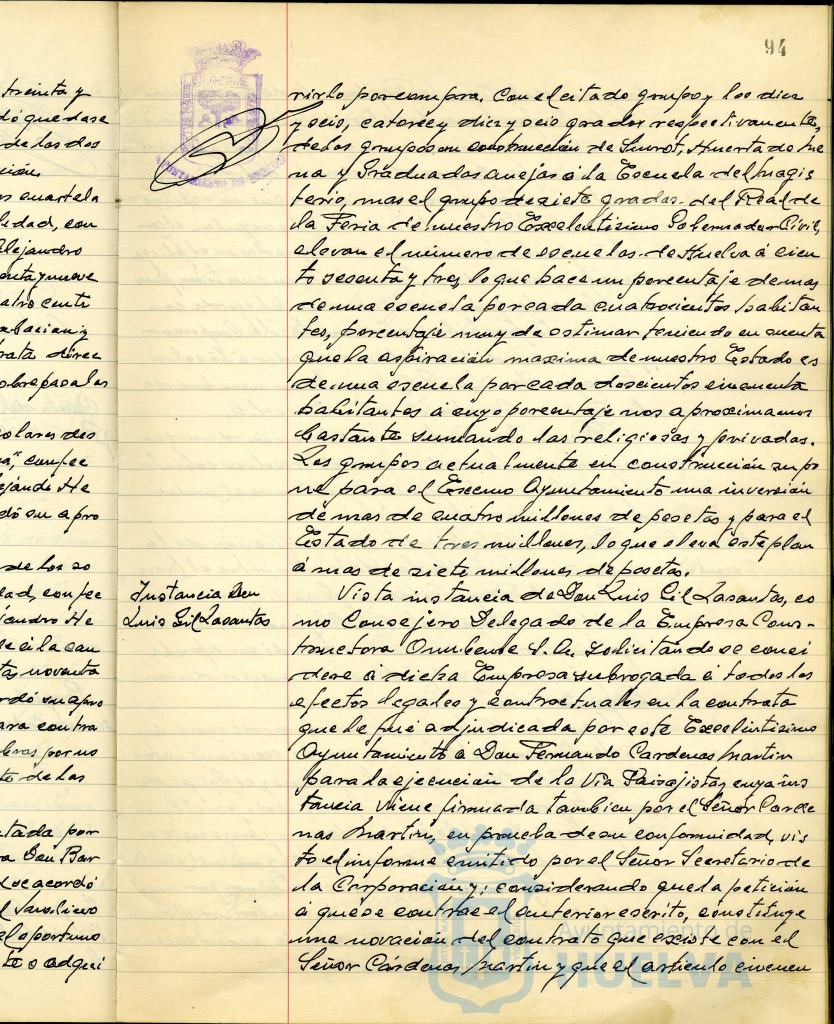 94
treinta y
dó quedase
de los dos
ción
cuartela
lidad, con
Alejandro
enta y nueve
atro centi
mbacion y
rata direc
obrepasa las
olares des
a", confec
ejando He
dó su apro
de los so
dad, confec
jandro He
se á la can
ta, noventa
rdó su apro
para contra
bras por no
to de las
ntada por
a Don Bar
se acordó
l Sanlino
el oportuno
to o adqui
rirlo por compra. Con el citado grupo y los diez
y ocio, catorce y diez y ocio grados respectivamente,
de los grupos en construcción de Tinrot, Huerta de Me
na y Graduadas anejas á la Escuela del Magis
terio, mas el grupo de siete grados del Real de
la Feria de nuestro Excelentísimo Gobernador Civil,
elevan el número de escuelas de Huelva á cien
to sesenta y tres, lo que hace un porcentaje de mas
de una escuela por cada cuatrocientos habitan
tes, porcentaje muy de estimar teniendo en cuenta
que la aspiración maxima de nuestro Estado es
de una escuela por cada doscientos cincuenta
habitantes á cuyo porcentaje nos aproximamos
bastante sumando las religiosas y privadas.
Los grupos actualmente en construcción supo
ne para el Excmo Ayuntamiento una inversión
de mas de cuatro millones de pesetas y para el
Estado de tres millones, lo que eleva este plan
á mas de siete millones de pesetas.
Instancia Don
Luis Gil Lasantas
Vista instancia de Don Luis Gil Lasantas, co
mo Consejero Delegado de la Empresa Cons-
tructora Onubense S.A. solicitando se consi
dere á dicha Empresa subrogada á todos los
efectos legales y contractuales en la contrata
que le fué adjudicada por este Excelentísimo
Ayuntamiento á Don Fernando Cardenas Martin
para la ejecución de la Via Paisajista, cuya ins
tancia viene firmada tambien por el Señor Carde
nas Martin, en prueba de su conformidad, vis
to el informe emitido por el Señor Secretario de
la Corporación y; considerando que la petición
á que se contrae el anterior escrito, constituye
una novación del contrato que existe con el
Señor Cárdenas Martin y que el articulo cincuen
Ayuntamiento de
HUELVA